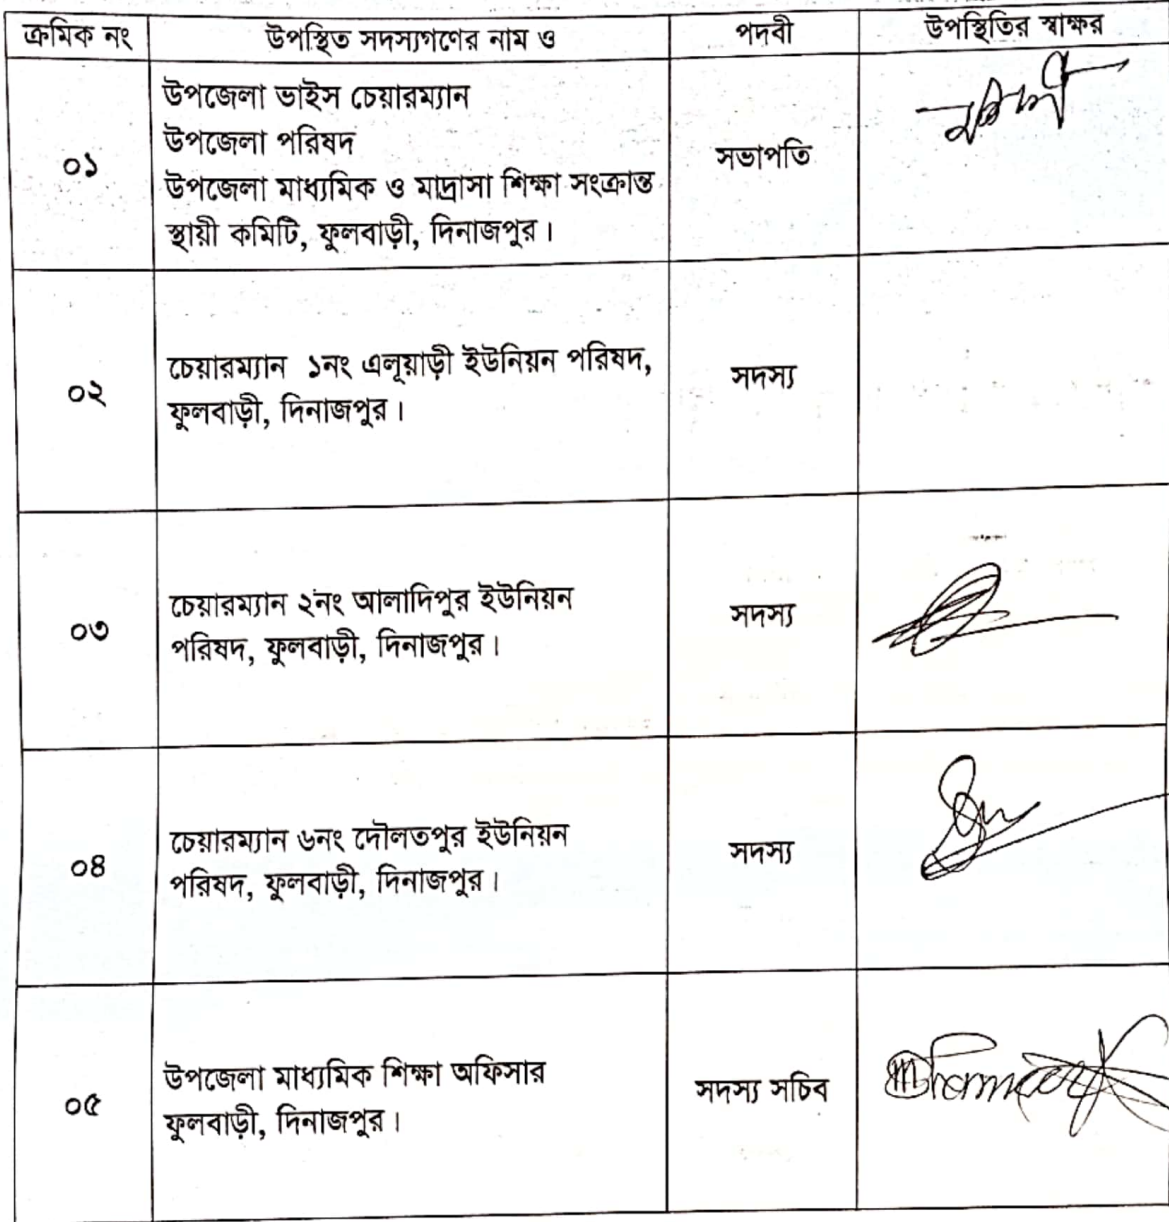 ক্রমিক নং উপস্থিত সদস্যগণের নাম ও পদবী উপস্থিতির স্বাক্ষর
০১
উপজেলা ভাইস চেয়ারম্যান
উপজেলা পরিষদ
উপজেলা মাধ্যমিক ও মাদ্রাসা শিক্ষা সংক্রান্ত
স্থায়ী কমিটি, ফুলবাড়ী, দিনাজপুর।
সভাপতি
০২
চেয়ারম্যান ১নং এলূয়াড়ী ইউনিয়ন পরিষদ,
ফুলবাড়ী, দিনাজপুর।
সদস্য
০৩
চেয়ারম্যান ২নং আলাদিপুর ইউনিয়ন
পরিষদ, ফুলবাড়ী, দিনাজপুর।
সদস্য
০৪
চেয়ারম্যান ৬নং দৌলতপুর ইউনিয়ন
পরিষদ, ফুলবাড়ী, দিনাজপুর।
সদস্য
০৫
উপজেলা মাধ্যমিক শিক্ষা অফিসার
ফুলবাড়ী, দিনাজপুর।
সদস্য সচিব